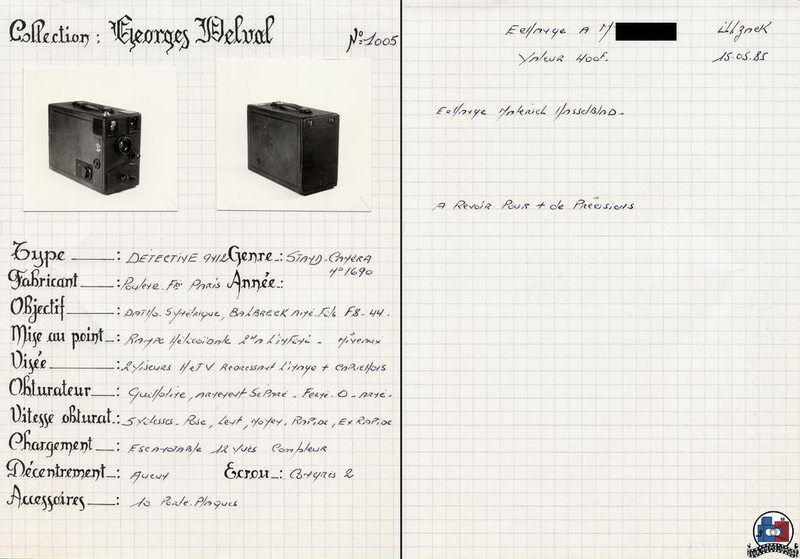 Collection : Georges Delval
N° 1005
Type : DÉTECTIVE 9x12 Genre : STAND-CAMERA
N° 1690
Fabricant : PARIS Année :
Objectif : SYMÉTRIQUE, F8 . 44 .
Mise au point : RAMPE HÉLICOIDALE
Visée : 2 VISEURS H et V REDRESSANT L'IMAGE +
Obturateur : GUILLOTINE, SÉPARÉ -
Vitesse obturat. : 5 VITESSES . POSE, LENT, MOYEN, RAPIDE, EX RAPIDE
Chargement : ESCAMOTABLE 12 VUES COMPTEUR
Décentrement : AUCUN Ecrou : CONGRÈS 2
Accessoires : 10 PORTE-PLAQUES
ECHANGE A M
VALEUR 400F. 15.05.85
ECHANGE MATÉRIEL HASSELBLAD -
A REVOIR POUR + de PRÉCISIONS